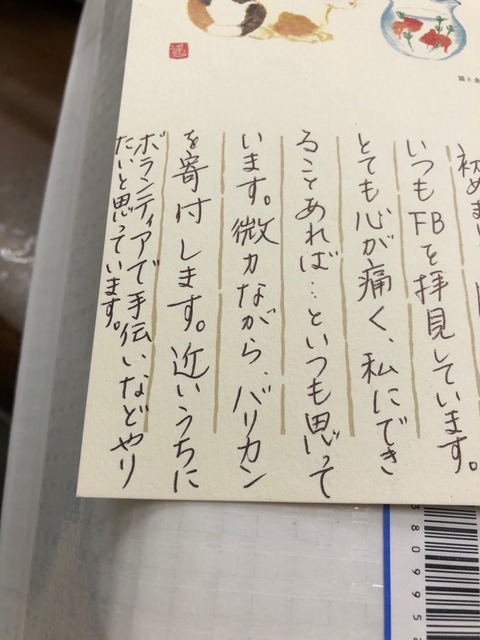 初めま
いつもFBを拝見しています。
とても心が痛く、私にでき
ることあれば…といつも思って
います。微力ながら、バリカン
を寄付します。近いうちに
ボランティアで手伝いなどやり
たいと思っています。
猫と金